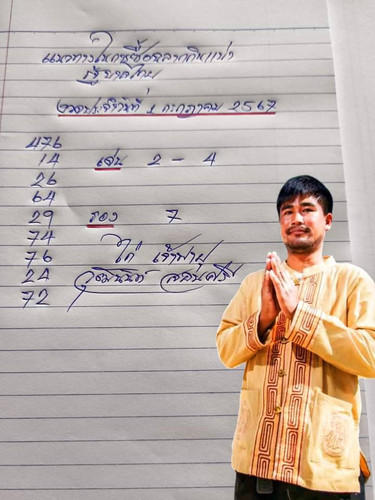 แนวทางในการซื้อสลากกินแบ่ง
รัฐบาลไทย
งวดประจำวันที่ 1 กรกฎาคม 2567
476
14 เด่น 2 - 4
26
64
29 รอง 7
74
76 ไก่ เจ้าพายุ
24
72